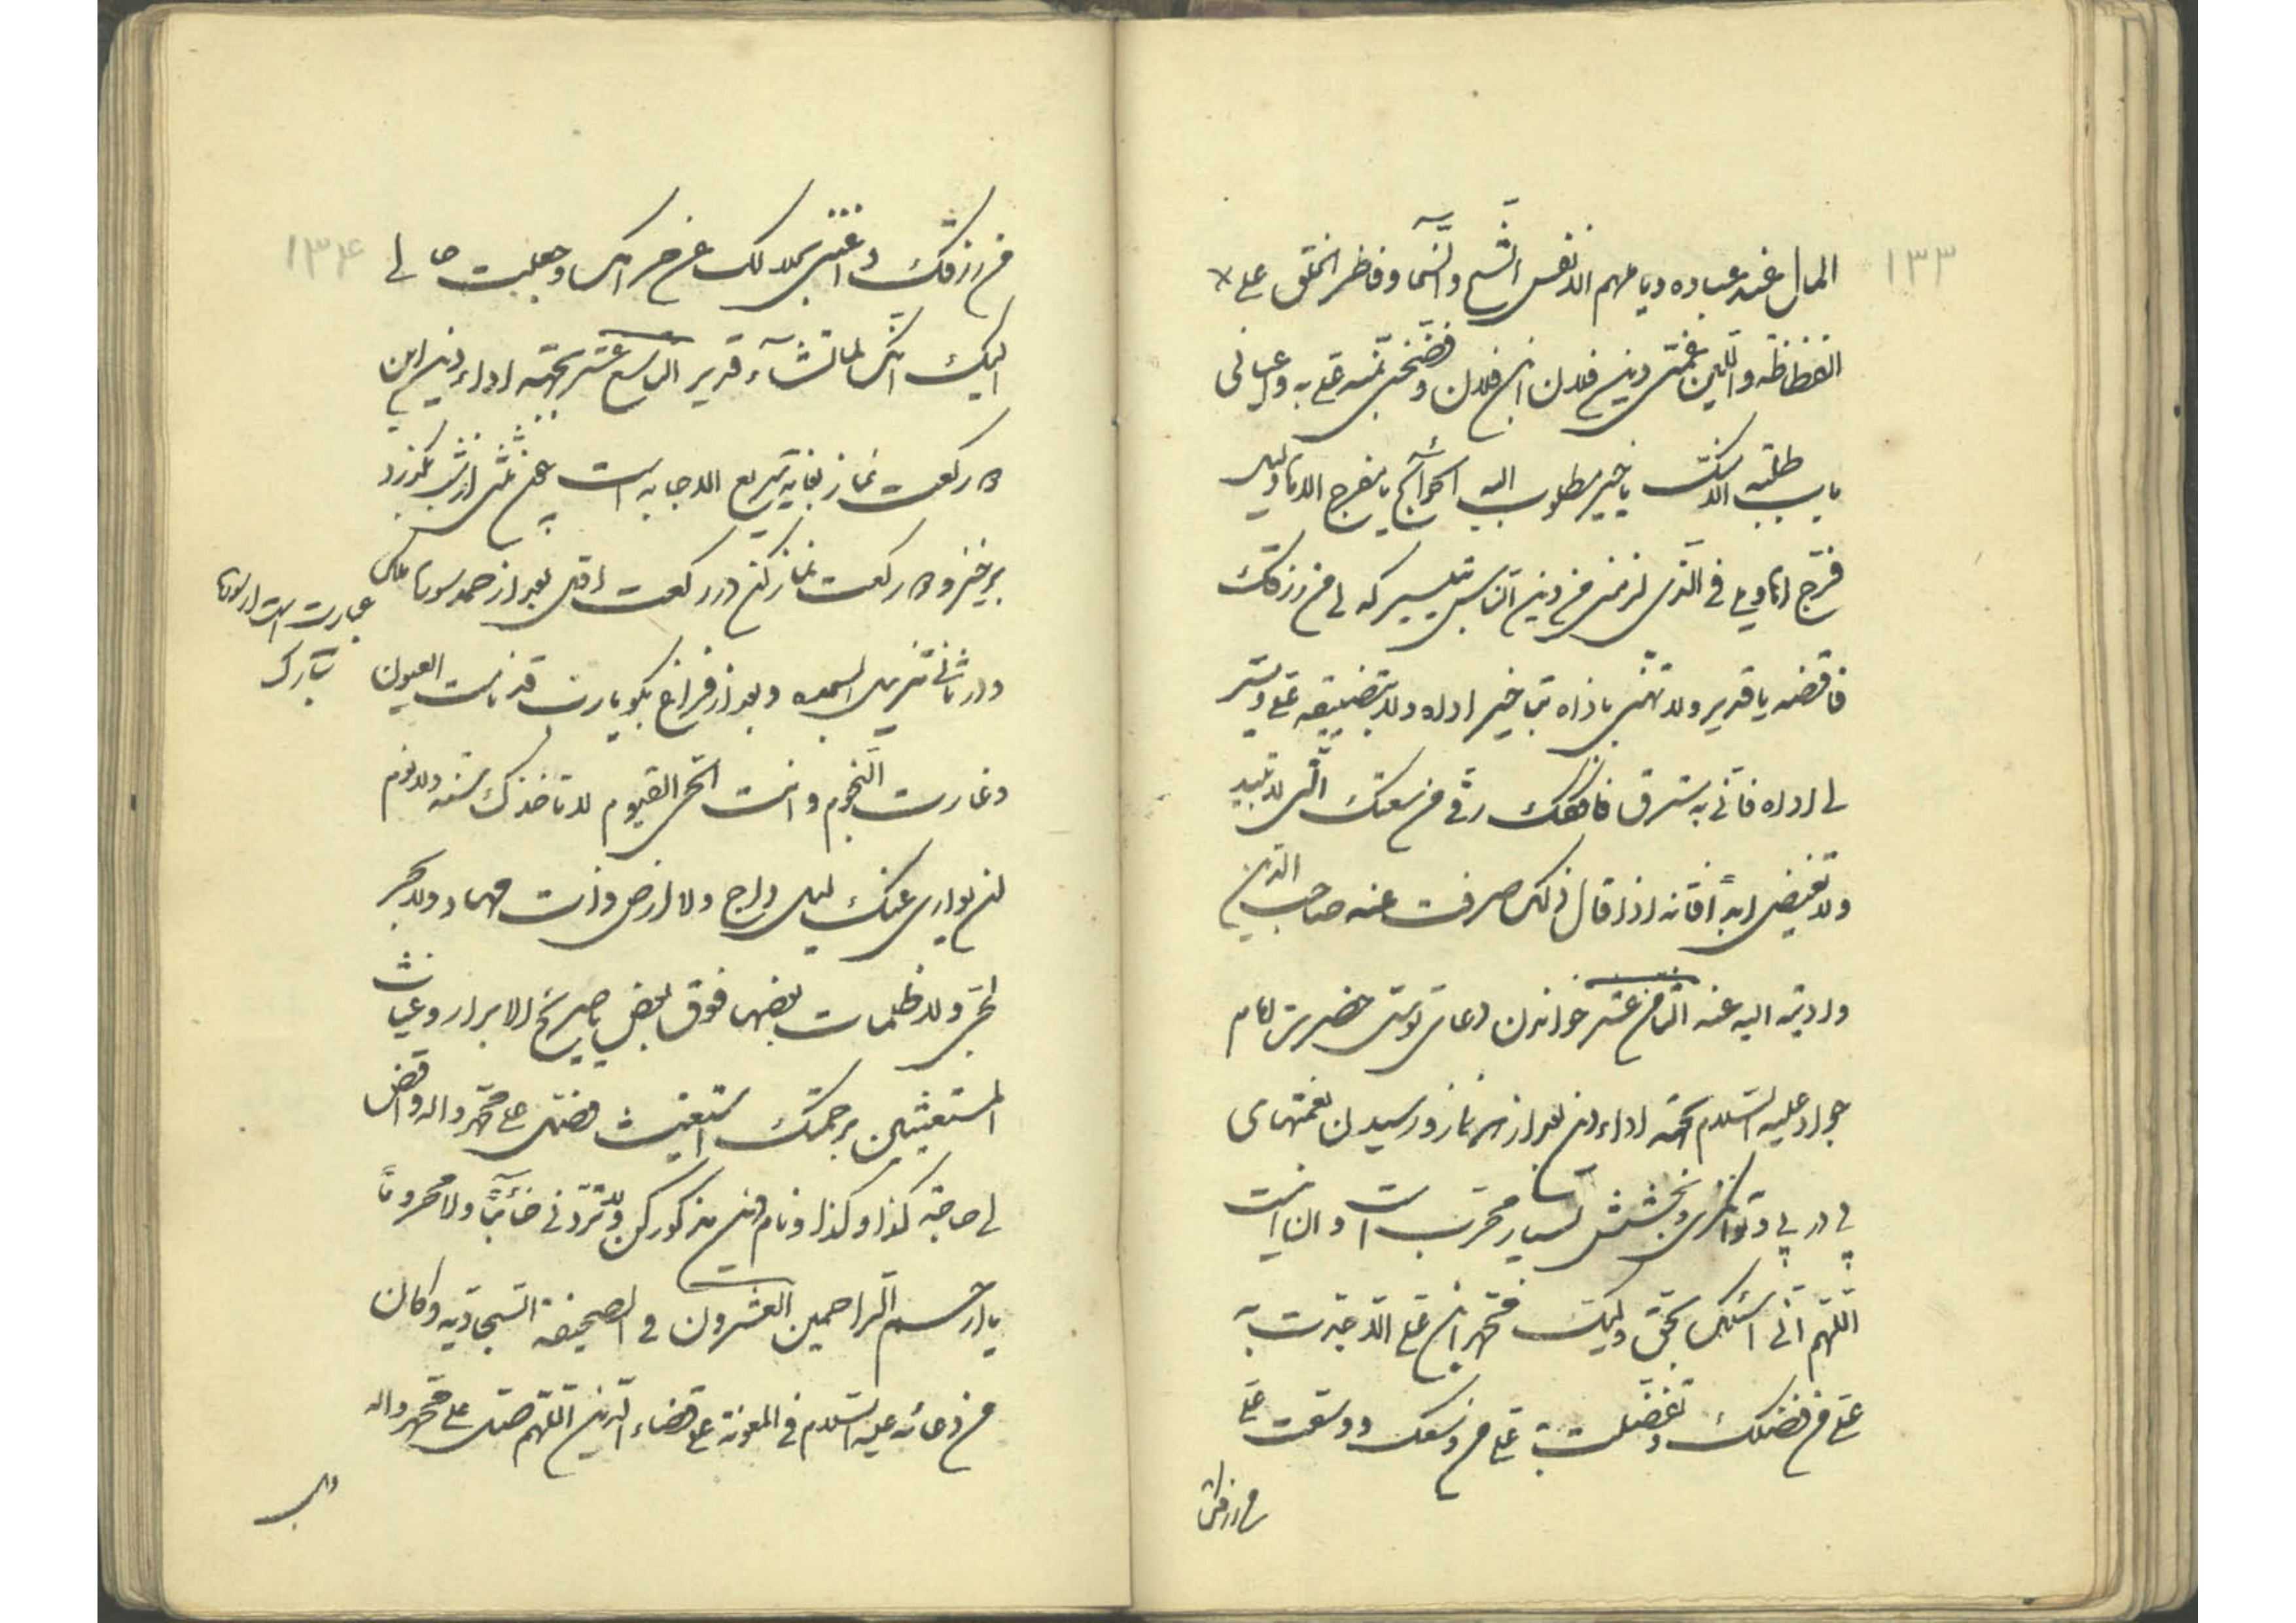 ۱۳۳
المال عند عباده ویا ملهم الانفس الشح والسخآ وفاطر الخلق علی
الفظاظه واللین غمنی دین فلان ابن فلان وفضحنی بمنه علی به واعیانی
باب طلبته الا منک یا خیر مطلوب الیه الحوآئج یا مفرج الاهاویل
فرج اهاویلی فی الذی لزمنی من دین الناس بتیسیرکه لی من رزقک
فاقضه یا قدیر ولا تهنی باذاه بتاخیر اداه ولا بتضییقه علی ویسر
لی اداه فانی به مسترق فافکک رقی من سعتک التی لا تبید
ولا تغیض ابداً فانه اذا قال ذلک صرفت عنه صاحب الدین
وادیته الیه عنه الثامن عشر خواندن دعای توسل حضرت امام
جواد علیه السلام بجهته اداء دین بعد از هر نماز ورسیدن نعمتهای
پی در پی وتوانگری وبخشش بسیار مجرب است وان اینست
اللهم انی اسئلک بحق ولیک محمد ابن علی الا جدت به
علی من فضلک وتفضلت به علی من وسعک ووسعت علی
من رزقک
۱۳۴
من رزقک واغنیتنی بحلالک عن حرامک وجعلت حاجتی
الیک انک لما تشآء قدیر التاسع عشر بجهته اداء دین این
دو رکعت نماز بغایه سریع الاجابه است پس چون ثلثی از شب بگذرد
برخیز ودو رکعت نماز کن در رکعت اول بعد از حمد سوره ملک
عبارت است از سوره تبارک
ودر ثانی تنزیل السجده وبعد از فراغ بگو یا رب قد نامت العیون
وغارت النجوم وانت الحی القیوم لا تاخذک سنه ولا نوم
لن یواری عنک لیل داج ولا ارض ذات مهاد ولا بحر
لجی ولا ظلمات بعضها فوق بعض یا صریخ الابرار وغیاث
المستغیثین برحمتک استغیث فصل علی محمد واله واقض
لی حاجة کذا وکذا ونام دین مذکور کن ولا تردنی خآئباً ولا محروماً
یا ارحم الراحمین العشرون فی الصحیفة السجادیه وکان
من دعائه علیه السلام فی المعونة علی قضاء الدین اللهم صل علی محمد واله
وهب